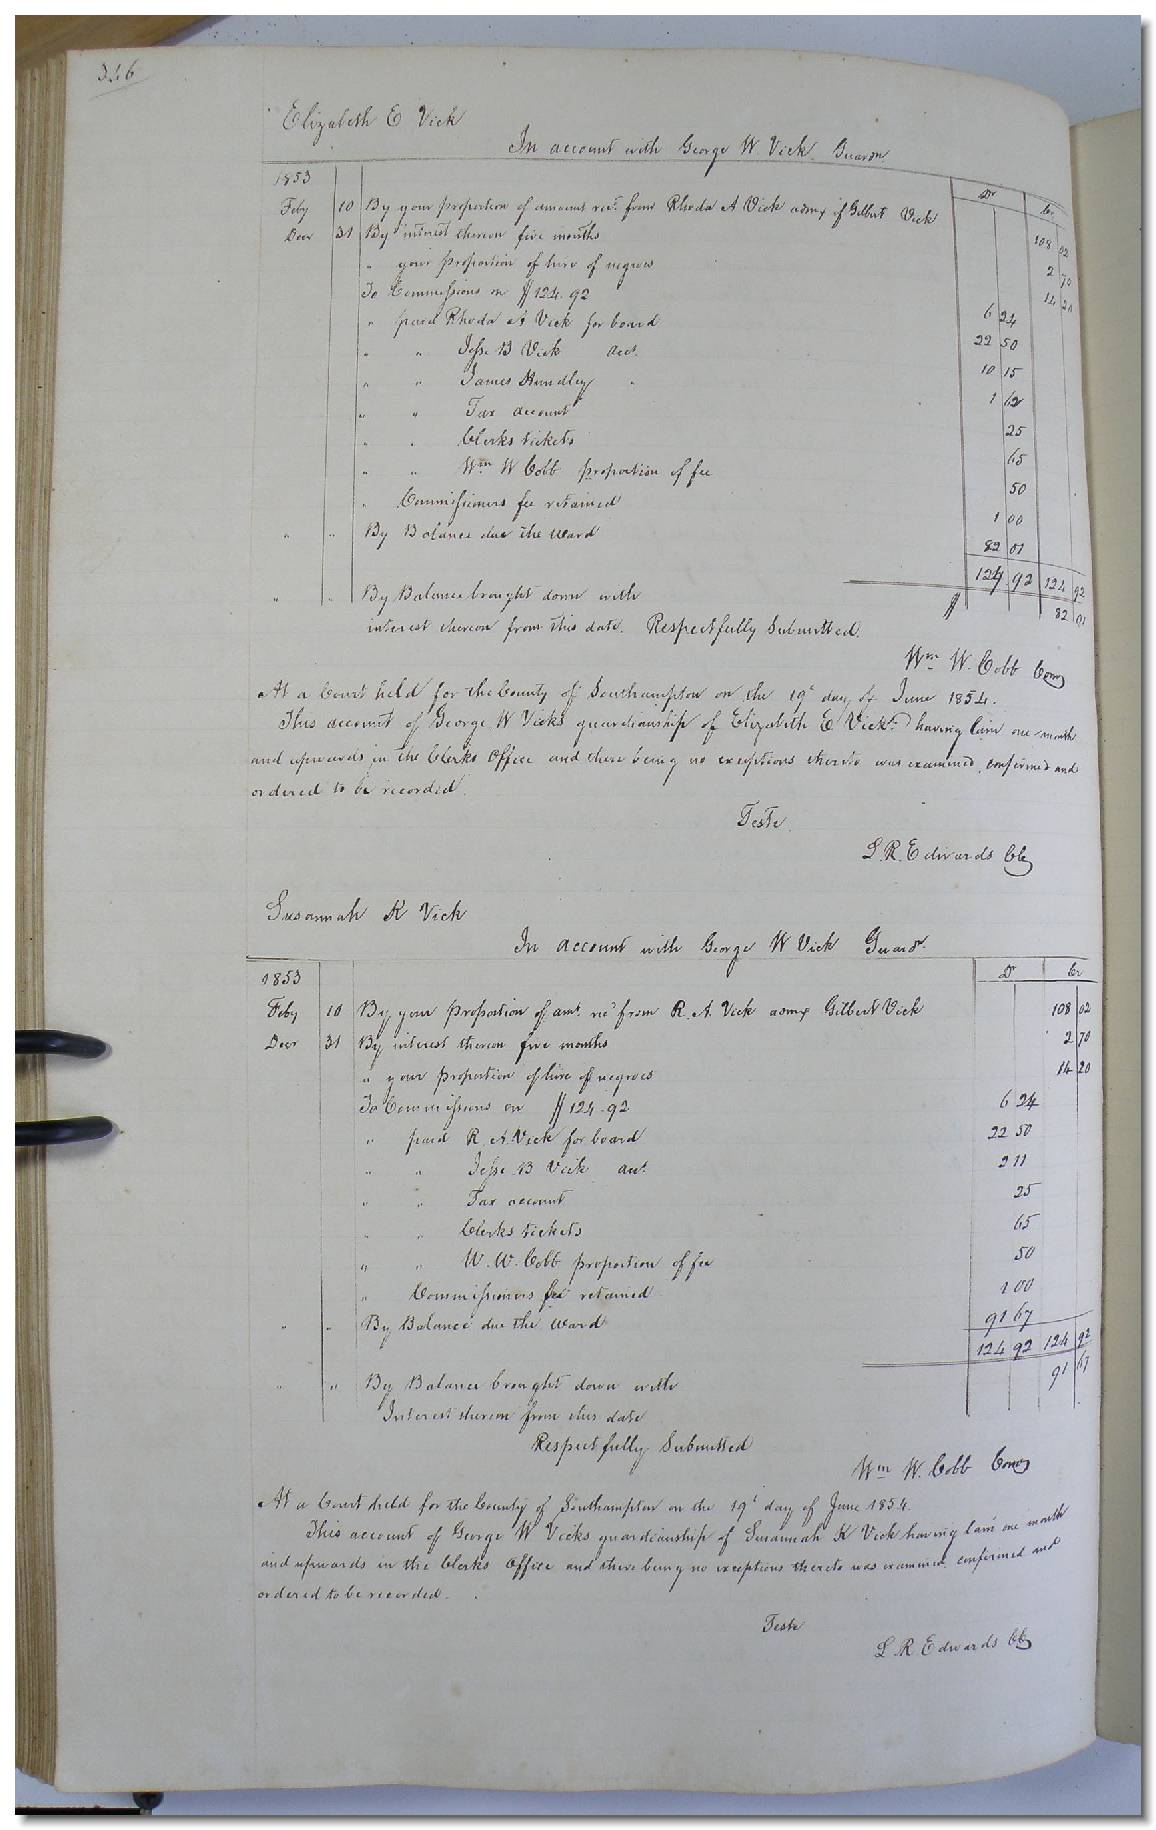 346
Elizabeth E Vick
In account with George W. Vick Guardn
Dr Cr
1853
Feby 10 By your proportion of amount recd from Rhoda A Vick admx of Gilbert Vick 108 02
Decr 31 By interest thereon five months 2 70
" your proportion of hire of negroes 14 20
To Commissions on $124.92 6 24
" paid Rhoda A Vick for board 22 50
" " Jesse B Vick acct. 10 15
" " James Hundley " 1 62
" " Tax account 25
" " Clerks tickets 65
" " Wm W Cobb proportion of fee 50
" Commissioners fee retained 1 00
" " By Balance due the ward 82 01
124 92 124 92
" " By Balance brought down with $ 82 01
interest thereon from this date. Respectfully Submitted.
Wm W. Cobb Comr
At a Court held for the County of Southampton on the 19t day of June 1854.
This account of George W Vicks guardianship of Elizabeth E Vick having lain one month
and upwards in the Clerks Office and there being no exceptions thereto was examined, confirmed and
ordered to be recorded.
Teste.
L. R. Edwards Clk
Susannah K Vick
In account with George W Vick Guardn.
Dr Cr
1853
Feby 10 By your proportion of amt. recd from R. A. Vick admx Gilbert Vick 108 02
Decr 31 By interest thereon five months 2 70
" your proportion of hire of negroes 14 20
To Commissions on $124.92 6 24
" paid R. A. Vick for board 22 50
" " Jesse B Vick acct. 2 11
" " Tax account 25
" " Clerks tickets 65
" " W. W. Cobb proportion of fee 50
" Commissioners fee retained 1 00
" " By Balance due the ward 91 67
124 92 124 92
" " By Balance brought down with 91 67
Interest thereon from this date
Respectfully Submitted
Wm W. Cobb Comr
At a Court held for the County of Southampton on the 19t day of June 1854.
This account of George W Vicks guardianship of Susannah K Vick having lain one month
and upwards in the Clerks Office and there being no exceptions thereto was examined confirmed and
ordered to be recorded.
Teste
L. R Edwards Clk